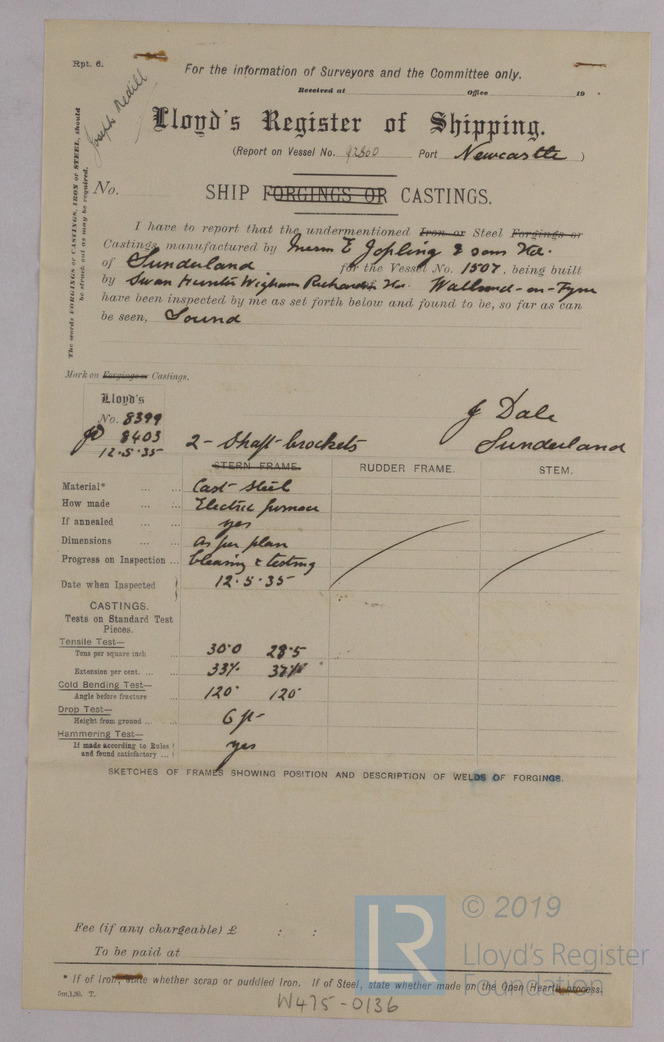 Rpt. 6.
Joseph
For the information of Surveyors and the Committee only.
Received at Office 19
Lloyd's Register of Shipping.
(Report on Vessel No. 92800 Port Newcastle )
The words FORGINGS or CASTINGS, IRON or STEEL, should
be struck out as may be required.
No. SHIP FORGINGS OR CASTINGS.
I have to report that the undermentioned Iron or Steel Forgings or
Castings manufactured by Messrs E Jopling & Sons Ltd.
of Sunderland for the Vessel No. 1507, being built
by Swan Hunter Wigham Richardson Ltd. Wallsend-on-Tyne
have been inspected by me as set forth below and found to be, so far as can
be seen, Sound
Mark on Forgings or Castings.
Lloyd's
No. 8399
JD 8403
12.5.35
J Dale
Sunderland
2 - Shaft brockets
STERN FRAME. RUDDER FRAME. STEM.
Material* ... ... Cast Steel
How made ... ... Electric furnace
If annealed ... ... yes
Dimensions ... ... As per plan
Progress on Inspection ... Clearing & testing
Date when Inspected 12.5.35
CASTINGS.
Tests on Standard Test
Pieces.
Tensile Test—
Tons per square inch 30.0 28.5
Extension per cent. ... ... 33% 37%
Cold Bending Test—
Angle before fracture ... 120° 120°
Drop Test—
Height from ground ... ... 6 ft
Hammering Test—
If made according to Rules
and found satisfactory ... yes
SKETCHES OF FRAMES SHOWING POSITION AND DESCRIPTION OF WELDS OF FORGINGS.
Fee (if any chargeable) £ : :
To be paid at
* If of Iron, state whether scrap or puddled Iron. If of Steel, state whether made on the Open Hearth process.
5m.1,30. T.
W475-0136
LR
© 2019
Lloyd's Register
Foundation